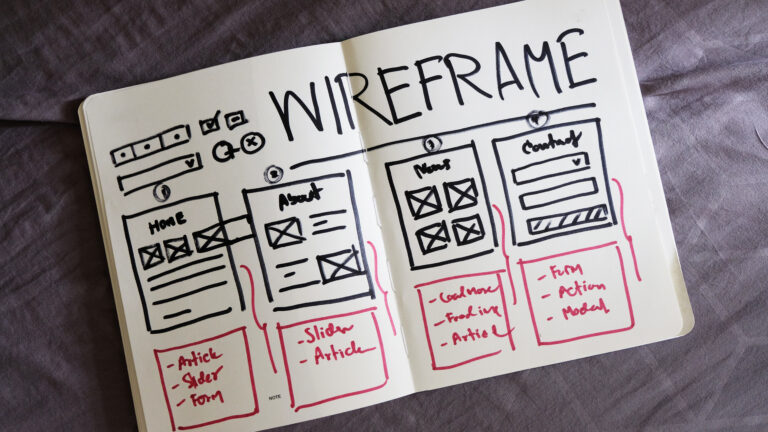 WIREFRAME
1
2
3
4
HOME
About
News
Contact
- Article
- Slider
- Form
- Slider
- Article
- Article
- Form
- Action
- Modal
NOTE